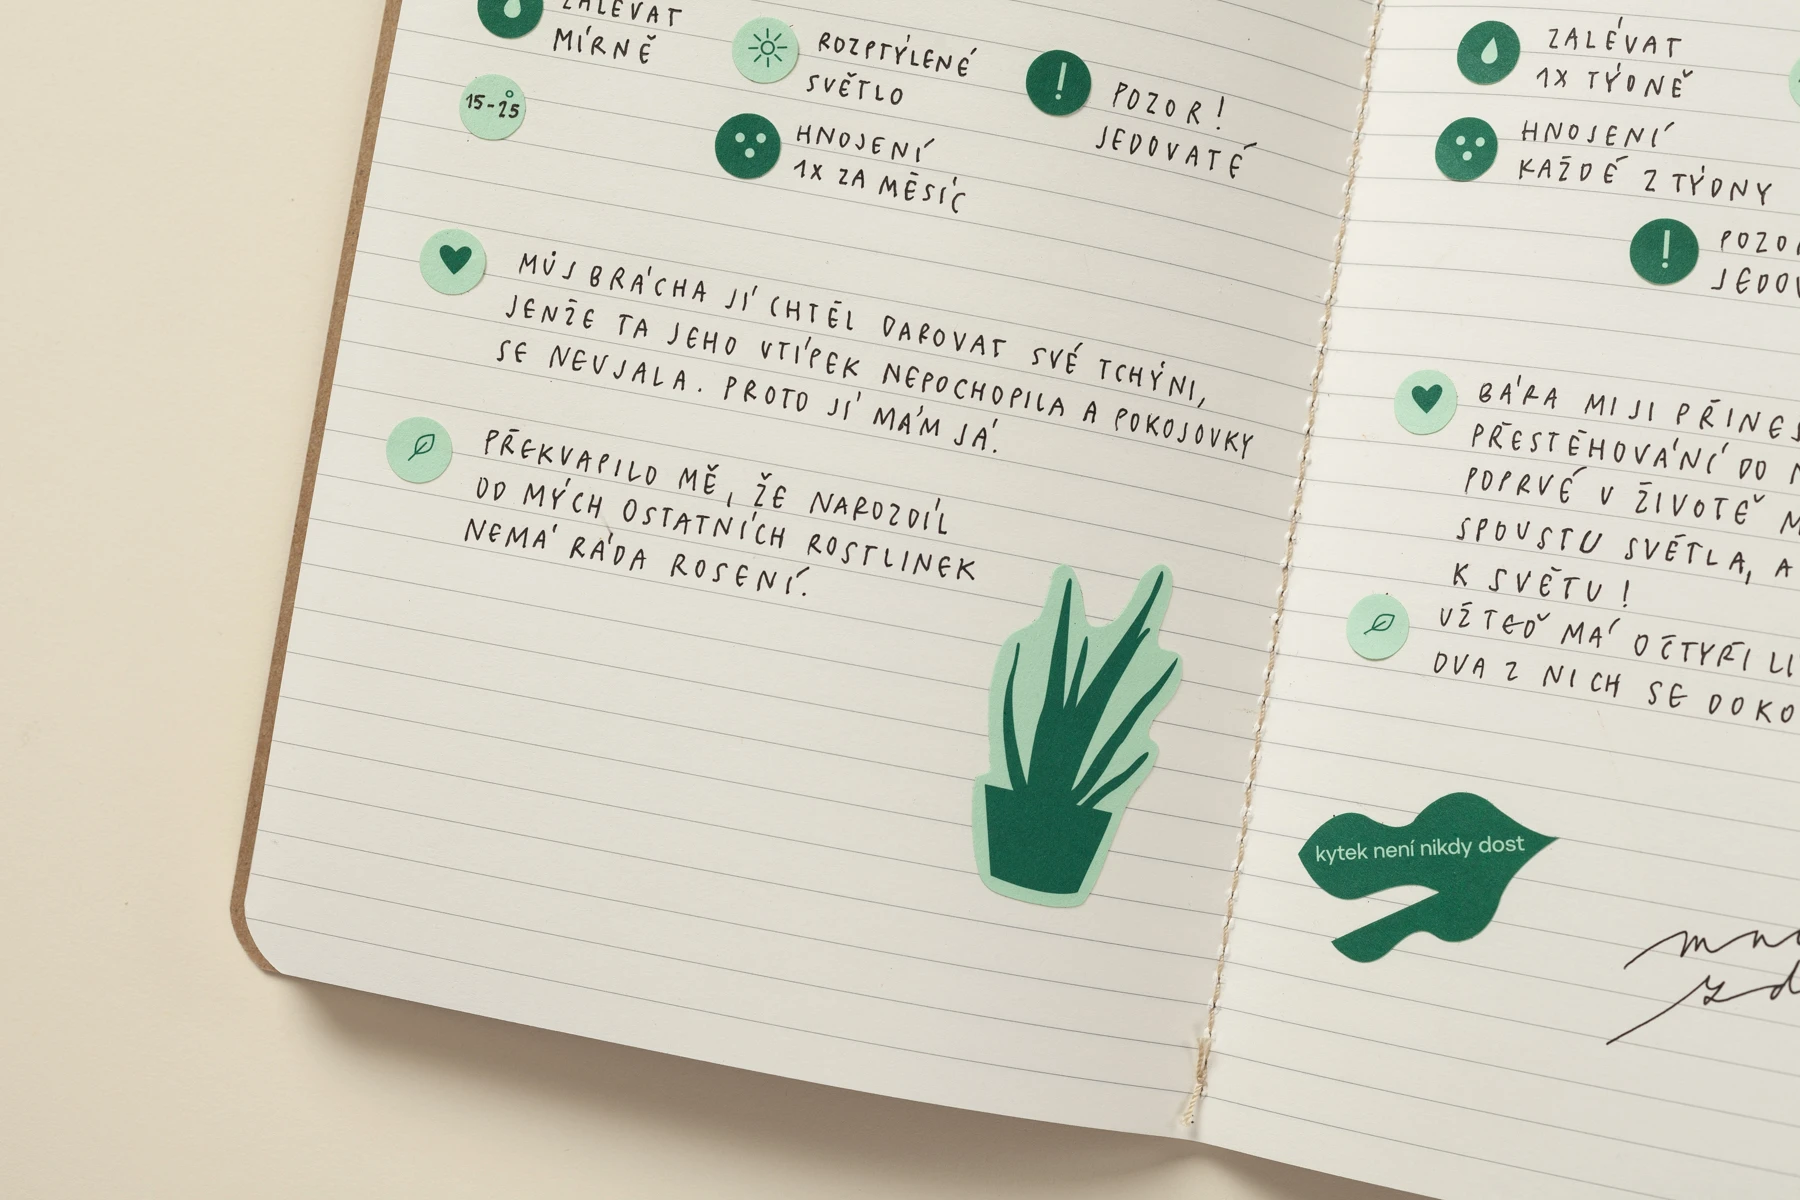 ZALÉVAT
MÍRNĚ
15-25°
ROZPTÝLENÉ
SVĚTLO
HNOJENÍ
1X ZA MĚSÍC
POZOR!
JEDOVATÉ
MŮJ BRÁCHA JÍ CHTĚL DAROVAT SVÉ TCHÝNI,
JENŽE TA JEHO VTÍPEK NEPOCHOPILA A POKOJOVKY
SE NEUJALA. PROTO JÍ MÁM JÁ.
PŘEKVAPILO MĚ, ŽE NAROZDÍL
OD MÝCH OSTATNÍCH ROSTLINEK
NEMÁ RÁDA ROSENÍ.
ZALÉVAT
1X TÝDNĚ
HNOJENÍ
KAŽDÉ 2 TÝDNY
POZO
JEDOV
BÁRA MI JI PŘINES
PŘESTĚHOVÁNÍ DO
POPRVÉ V ŽIVOTĚ M
SPOUSTU SVĚTLA, A
K SVĚTU!
UŽ TEĎ MÁ O ČTYŘI LI
DVA Z NICH SE DOKO
kytek není nikdy dost